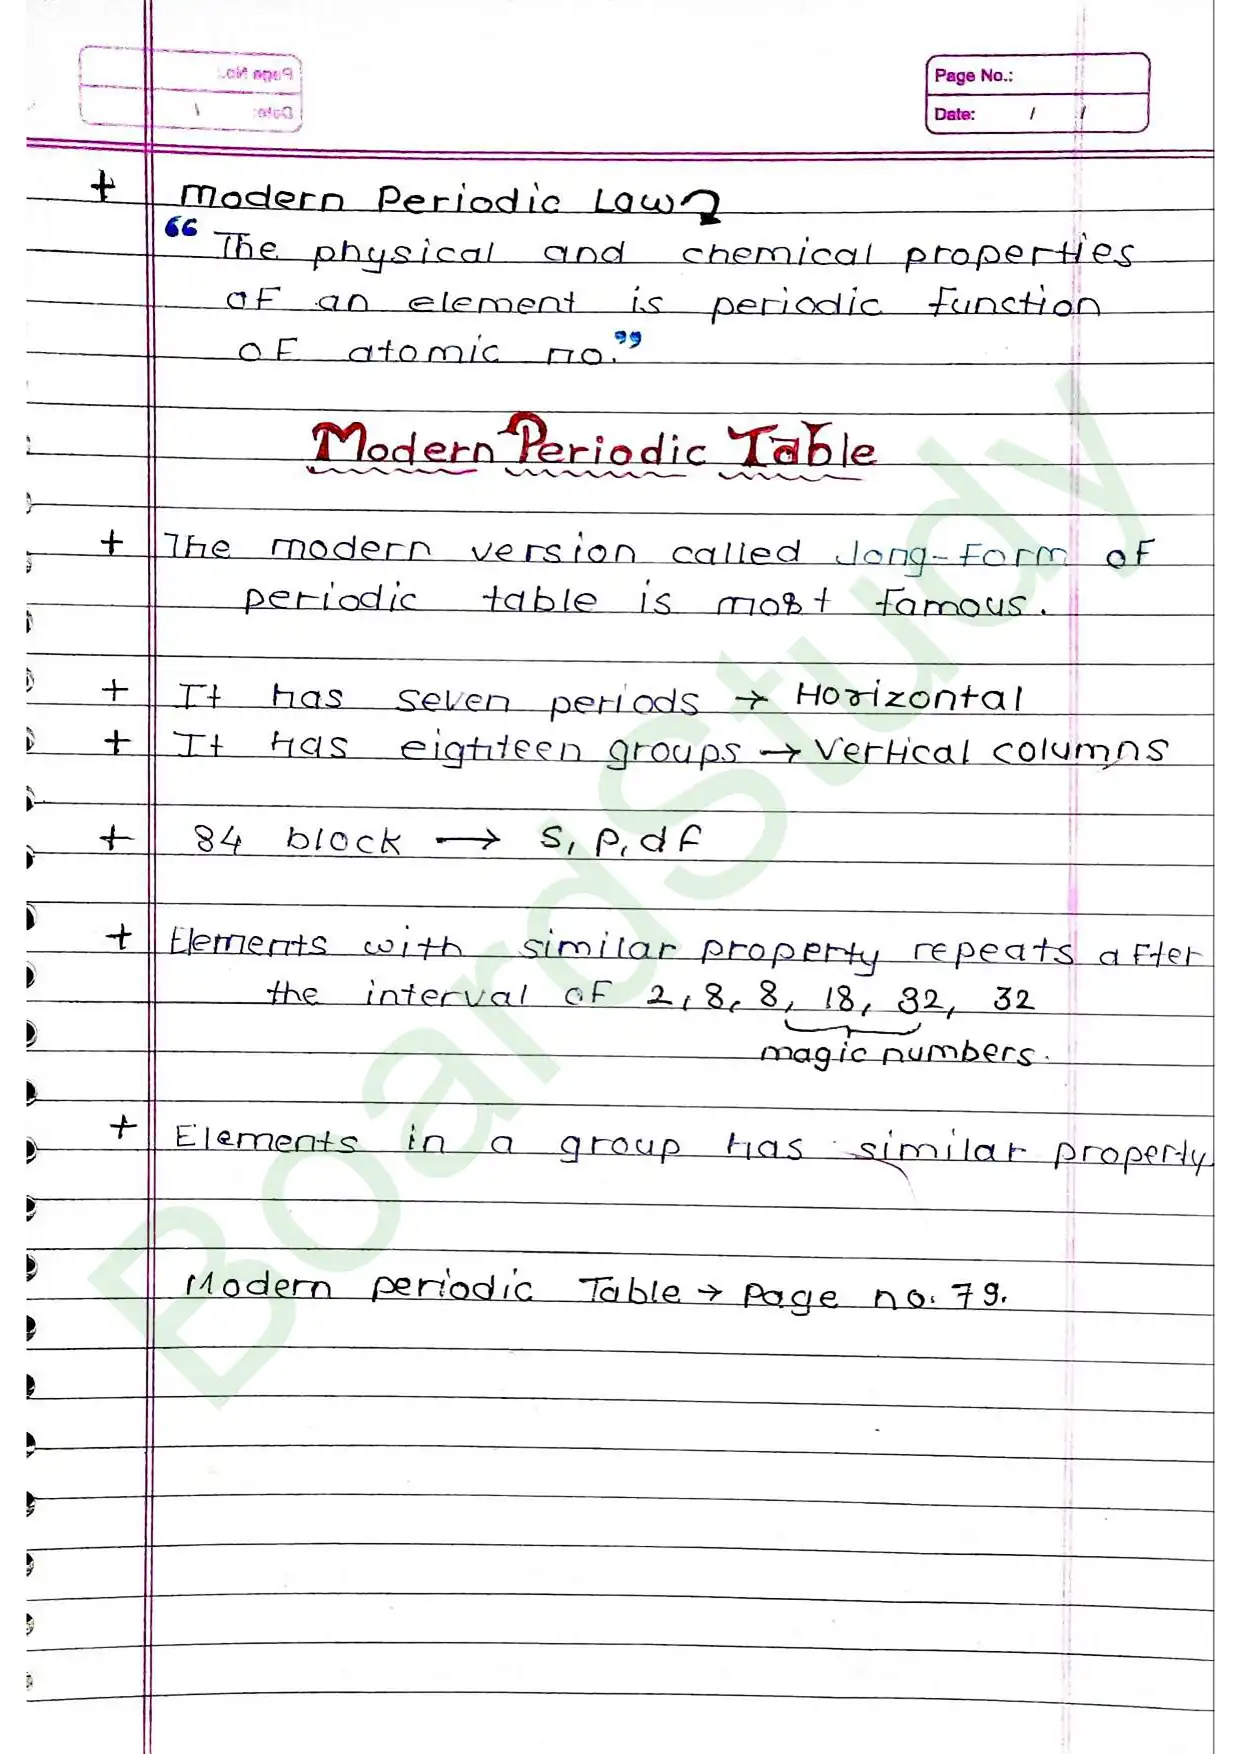 Page No.:
Date: / /
+ Modern Periodic Law
“The physical and chemical properties
of an element is periodic function
of atomic no.”
Modern Periodic Table
+ The modern version called long-form of
periodic table is most famous.
+ It has seven periods → Horizontal
+ It has eighteen groups → Vertical columns
+ 84 block → s, p, d f
+ Elements with similar property repeats after
the interval of 2, 8, 8, 18, 32, 32
magic numbers.
+ Elements in a group has similar property
Modern periodic Table → Page no. 79.
BoardStudy